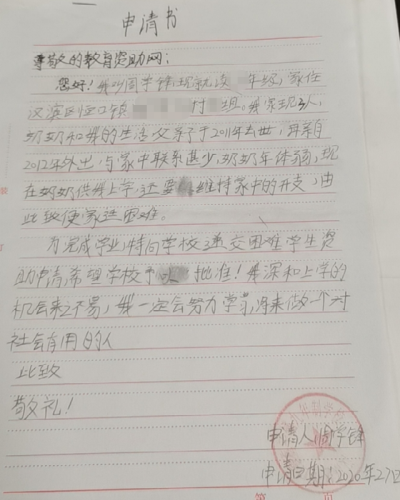 申请书
尊敬的教育资助网:
您好!我叫周学锋,现就读 年级,家住
汉滨区恒口镇 村 组。我家现3人,
奶奶和我的生活父亲于2011年去世,母亲自
2012年外出,与家中联系甚少,奶奶年体弱,现
在奶奶供我上学,还要 维持家中的开支,由
此致使家这困难。
为完成学业特向学校递交困难学生资
助申请希望学校予 批准!我深知上学的
机会来之不易,我一定会努力学习,将来做一个对
社会有用的人
此致
敬礼!
申请人:周学锋
申请日期:2020年2月